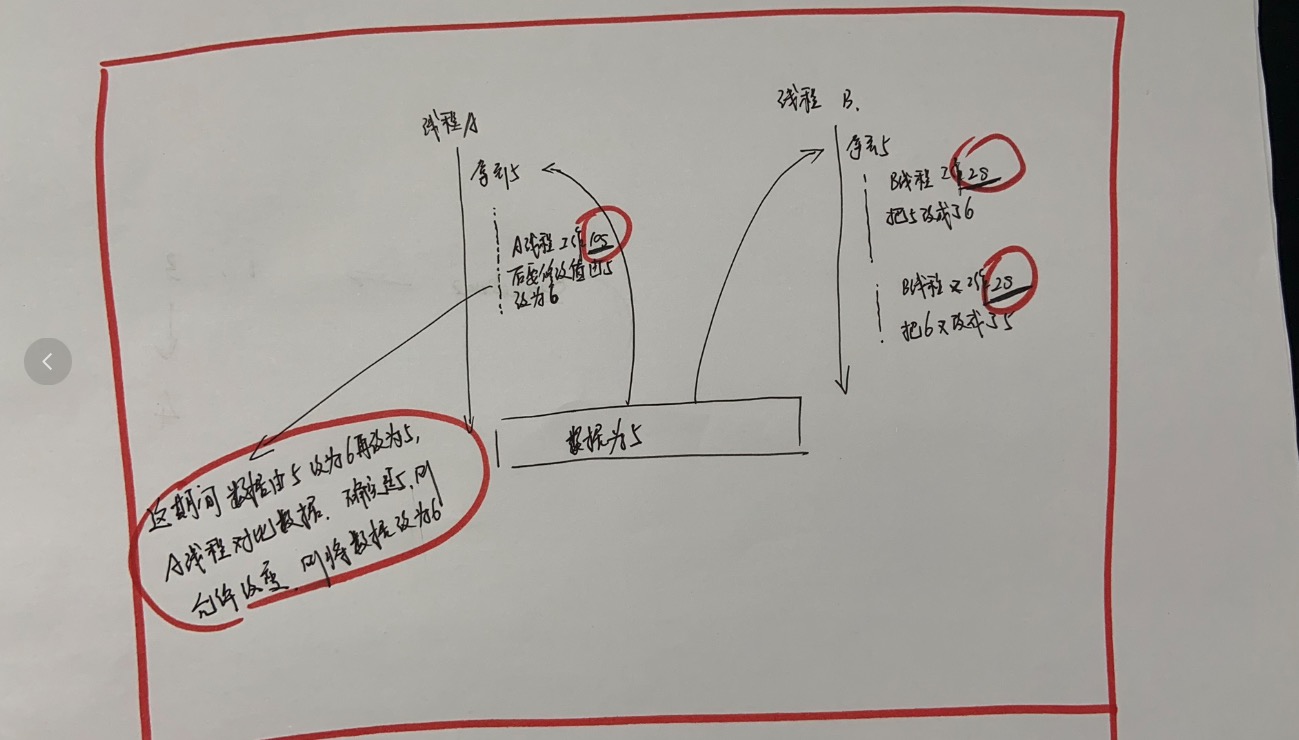 线程A
拿到5
A线程工作10s
后要修改值由5
改为6
线程 B.
拿到5
B线程工作2s
把5改成了6
B线程又工作2s
把6又改成了5
数据为5
这期间数据由5改为6再改为5,
A线程对比数据.确实是5,则
允许改变.则将数据改为6